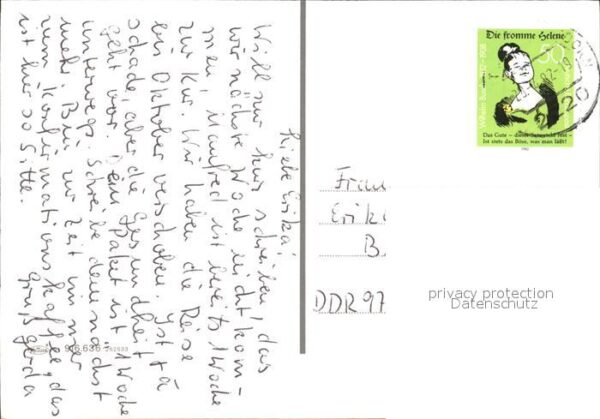 Liebe Erika!
Will nur kurz schreiben, das
wir nächste Woche nicht kom-
men, Manfred ist bereits 1 Woche
zur Kur. Wir haben die Reise
bis Oktober verschoben. Ist ja
schade, aber die Gesundheit
geht vor. Dein Paket ist 1 Woche
unterwegs. Schreibe demnächst
mehr. Bin zur Zeit immer
zum Konfirmationskaffee, das
ist hier so Sitte.
Gruß Gerda
916.636
Die fromme Helene
50
Das Gute – dieser Satz steht fest –
Ist stets das Böse, was man läßt!
Frau
Erik
B
DDR 97
privacy protection
Datenschutz